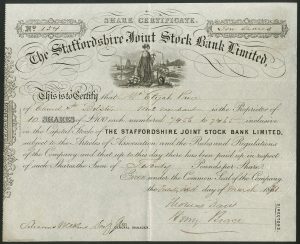 SHARE CERTIFICATE.
No 124
Ten Shares
The Staffordshire Joint Stock Bank Limited.
This is to Certify that Mr Elijah Price
of
is the Proprietor of
10 SHARES of £100 each numbered 7456 to 7465 inclusive
in the Capital Stock of THE STAFFORDSHIRE JOINT STOCK BANK LIMITED,
subject to the Articles of Association, and the Rules and Regulations
of the Company, and that up to this day there has been paid up in respect
of such Shares the Sum of Twenty Pounds per Share.
Given under the Common Seal of the Company
the day of March
DIRECTORS